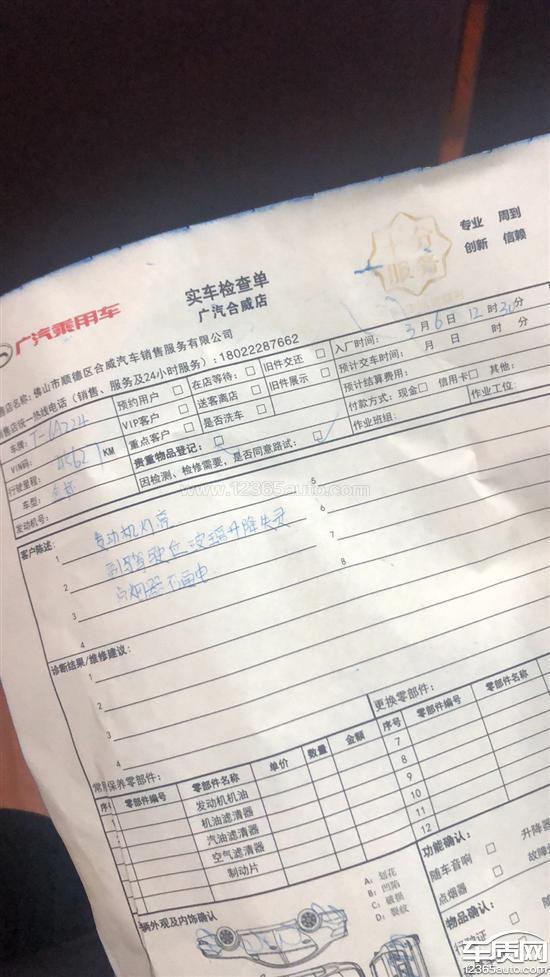 专业 周到
创新 信赖
十分
服务
广汽乘用车
实车检查单
广汽合威店
售店名称:佛山市顺德区合威汽车销售服务有限公司
销售店统一热线电话(销售、服务及24小时服务):18022287662
入厂时间: 3月6日12时30分
预计交车时间: 月 日 时 分
预计结算费用:
付款方式:现金□ 信用卡□ 其他:
作业班组: 作业工位:
预约用户 □ 在店等待:□ 旧件交还 □
VIP客户 □ 送客离店 □ 旧件展示 □
重点客户 □ 是否洗车 □
贵重物品登记:□
因检测、检修需要,是否同意路试:□
车牌:
VIN码:
行驶里程: KM
车型:
发动机号:
客户陈述:
1 发动机灯亮
2 副驾驶位玻璃升降失灵
3 点烟器不通电
4
5
6
7
8
诊断结果/维修建议:
1
2
3
4
更换零部件:
常用保养零部件:
零部件编号 零部件名称 单价 数量 金额 序号 零部件编号 零部件名称
1 发动机机油 7
机油滤清器 8
汽油滤清器 9
空气滤清器 10
制动片 11
12
A: 划花
B: 凹陷
C: 破损
D: 裂纹
功能确认:
随车音响 □ 升降器
点烟器 □
物品确认:
行驶证 □
辆外观及内饰确认
www.12365auto.com
车质网
12365auto.com